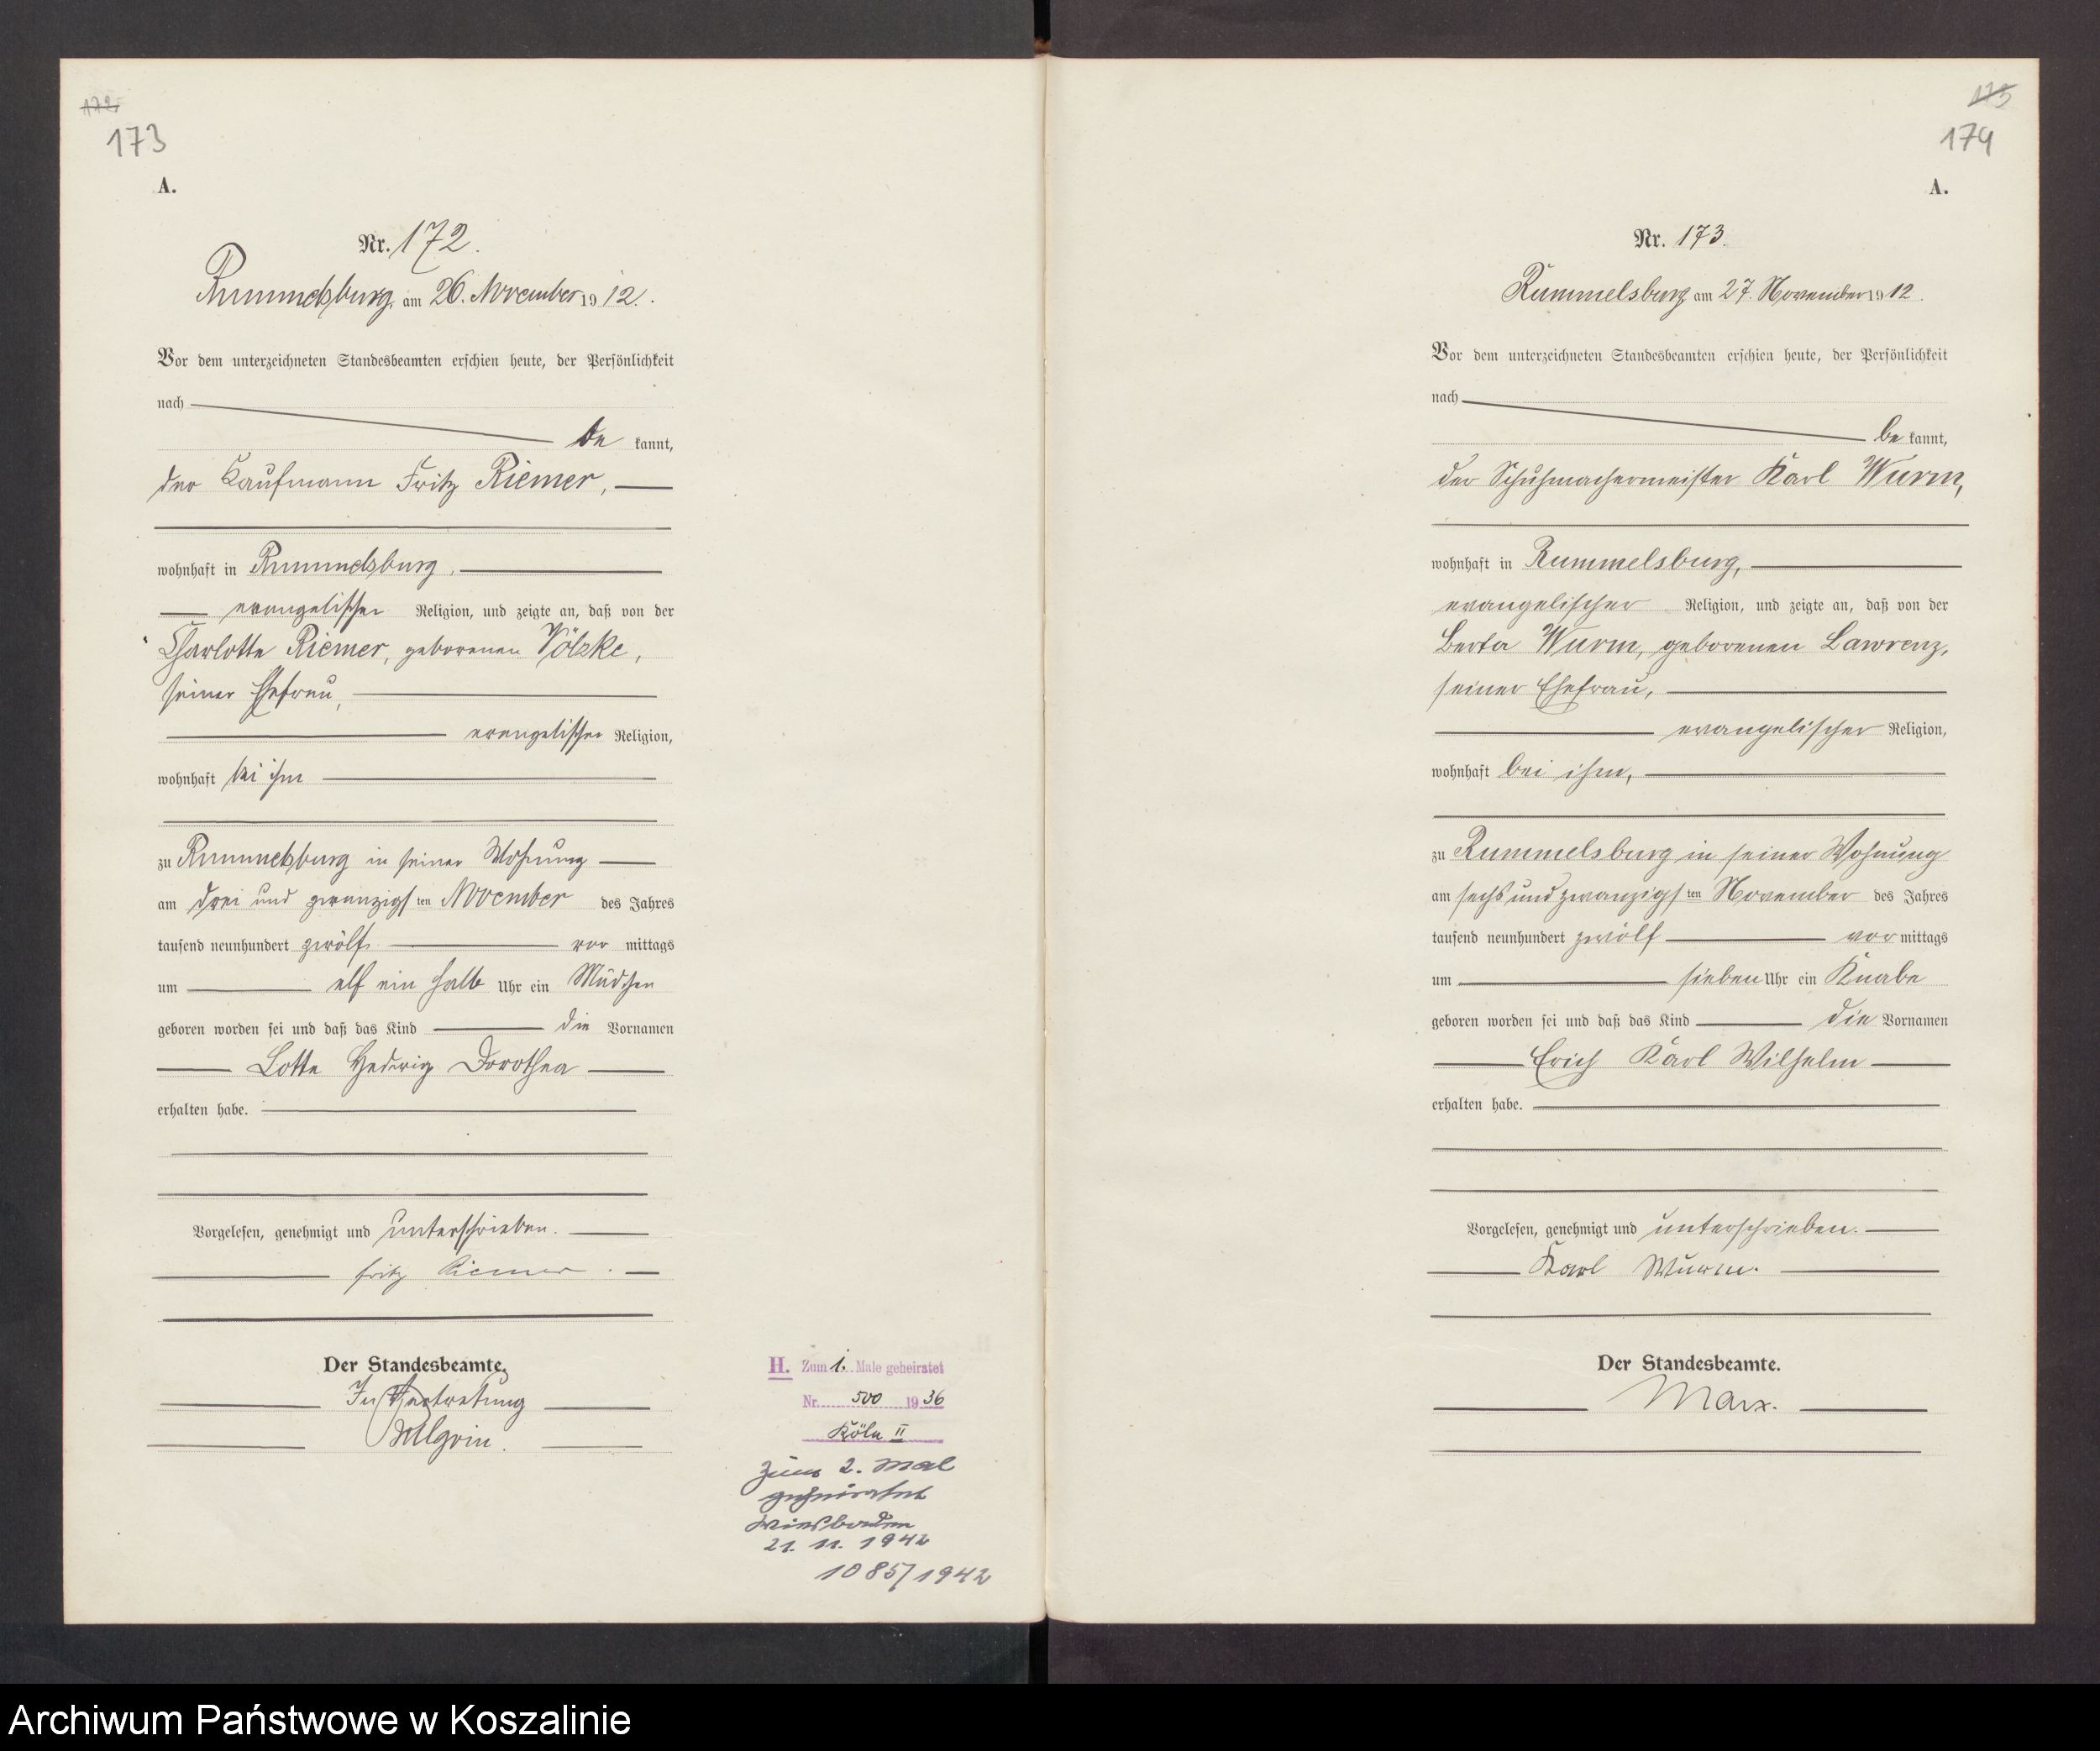 172
173
A.
Nr. 172.
Rummelsburg, am 26. November 1912.
Vor dem unterzeichneten Standesbeamten erschien heute, der Persönlichkeit
nach
be kannt,
der Kaufmann Fritz Riemer,
wohnhaft in Rummelsburg,
evangelischer Religion, und zeigte an, daß von der
Charlotte Riemer, geborenen Völzke,
seiner Ehefrau,
evangelischer Religion,
wohnhaft bei ihm
zu Rummelsburg in seiner Wohnung
am drei und zwanzigsten November des Jahres
tausend neunhundert zwölf vor mittags
um elf ein halb Uhr ein Mädchen
geboren worden sei und daß das Kind die Vornamen
Lotte Hedwig Dorothea
erhalten habe.
Vorgelesen, genehmigt und unterschrieben.
Fritz Riemer.
Der Standesbeamte,
In Vertretung
H. Zum 1. Male geheiratet
Nr. 500 1936
Köln II
Zum 2. Mal
geheiratet
Wiesbaden
21. 11. 1942
1085/1942
173
174
A.
Nr. 173.
Rummelsburg am 27. November 1912.
Vor dem unterzeichneten Standesbeamten erschien heute, der Persönlichkeit
nach
be kannt,
der Schuhmachermeister Karl Wurm,
wohnhaft in Rummelsburg,
evangelischer Religion, und zeigte an, daß von der
Berta Wurm, geborenen Lawrenz,
seiner Ehefrau,
evangelischer Religion,
wohnhaft bei ihm,
zu Rummelsburg in seiner Wohnung
am sechs und zwanzigsten November des Jahres
tausend neunhundert zwölf vor mittags
um sieben Uhr ein Knabe
geboren worden sei und daß das Kind die Vornamen
Erich Karl Wilhelm
erhalten habe.
Vorgelesen, genehmigt und unterschrieben.
Karl Wurm.
Der Standesbeamte.
Marx.
Archiwum Państwowe w Koszalinie